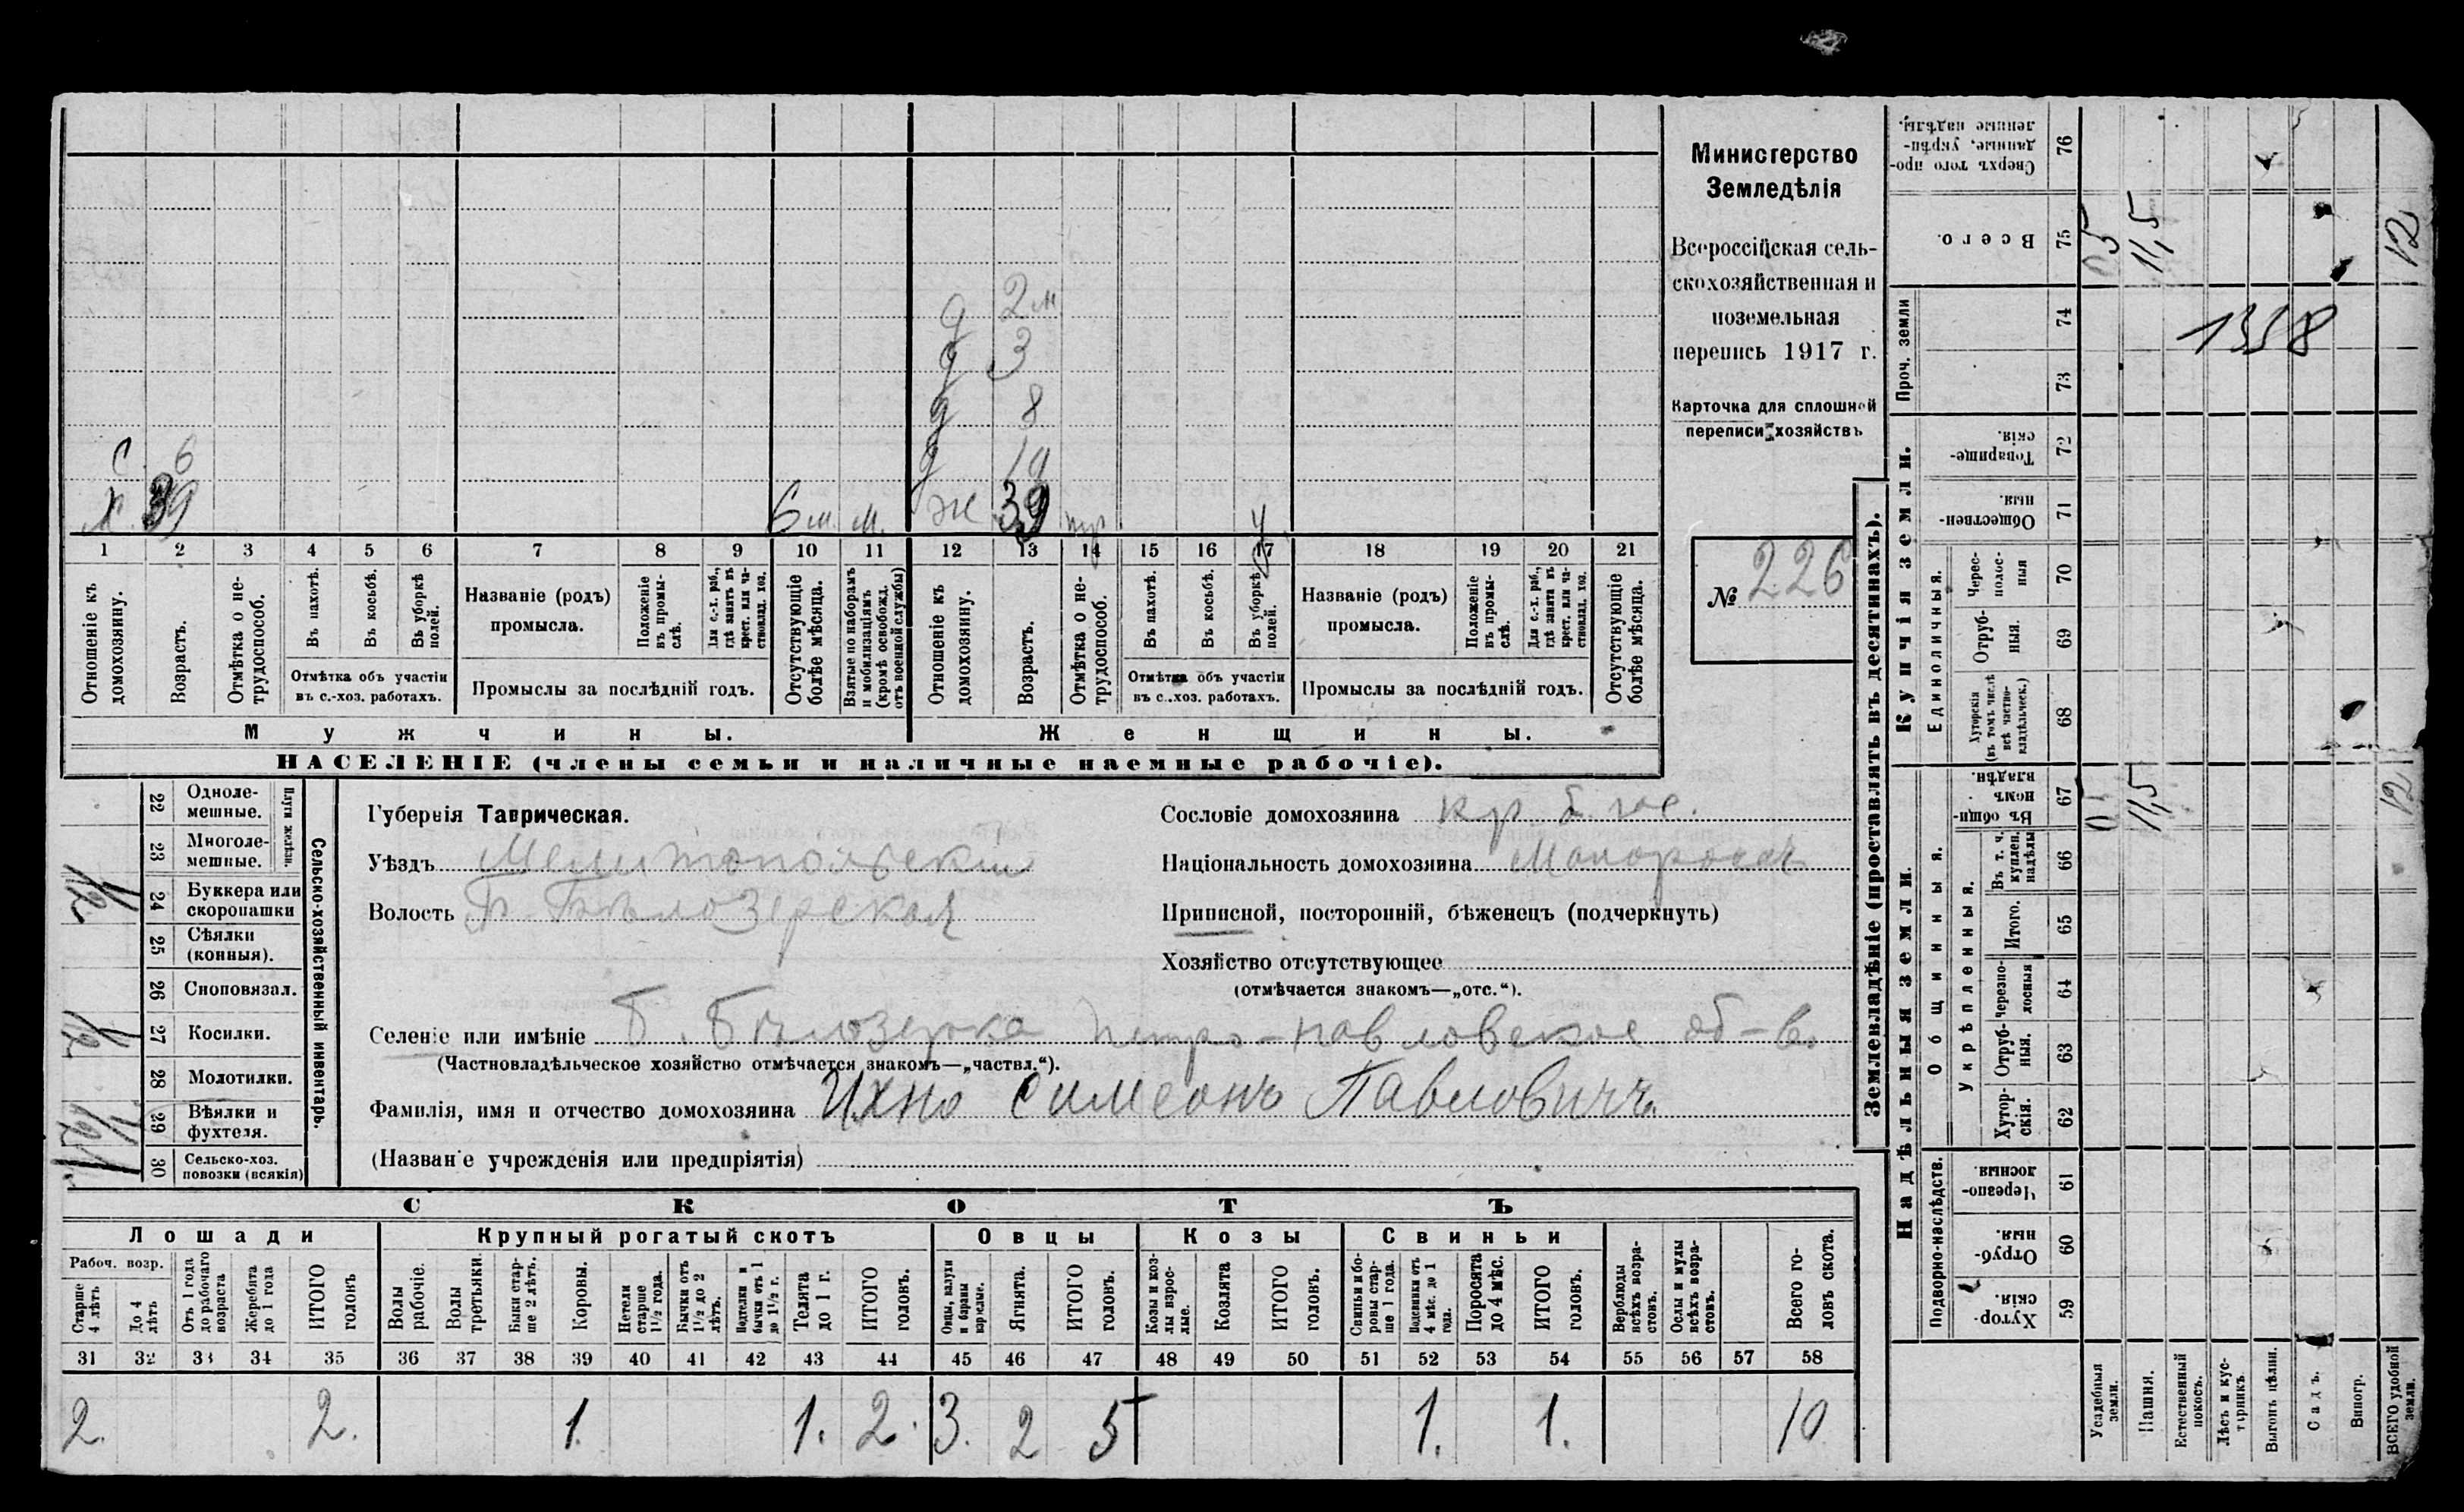 Министерство
Земледѣлія
Всероссійская сель-
скохозяйственная и
поземельная
перепись 1917 г.
Карточка для сплошной
переписи хозяйствъ
№ 226
д 2 м
д 3
д 8
С 6 д 19
Х 39 6 м. м. ж 39 нгр У
1 2 3 4 5 6 7 8 9 10 11 12 13 14 15 16 17 18 19 20 21
Отношеніе къ домохозяину.
Возрастъ.
Отмѣтка о не-трудоспособ.
Въ пахотѣ.
Въ косьбѣ.
Въ уборкѣ полей.
Отмѣтка объ участіи
въ с.-хоз. работахъ.
Названіе (родъ)
промысла.
Положеніе въ промы-слѣ.
Для с.-х. раб., гдѣ занятъ въ крест. или ча-стновлад. хоз.
Промыслы за послѣдній годъ.
Отсутствующіе болѣе мѣсяца.
Взятые по наборамъ и мобилизаціямъ (кромѣ освобожд. отъ военной службы)
Отношеніе къ домохозяину.
Возрастъ.
Отмѣтка о не-трудоспособ.
Въ пахотѣ.
Въ косьбѣ.
Въ уборкѣ полей.
Отмѣтка объ участіи
въ с.-хоз. работахъ.
Названіе (родъ)
промысла.
Положеніе въ промы-слѣ.
Для с.-х. раб., гдѣ занята въ крест. или ча-стновлад. хоз.
Промыслы за послѣдній годъ.
Отсутствующіе болѣе мѣсяца.
Мужчины. Женщины.
НАСЕЛЕНІЕ (члены семьи и наличные наемные рабочіе).
Сельско-хозяйственный инвентарь.
Плуги желѣзн.
22 Одноле-мешные.
23 Многоле-мешные.
24 Буккера или скоропашки 1/2
25 Сѣялки (конныя).
26 Сноповязал.
27 Косилки. 1/2
28 Молотилки.
29 Вѣялки и фухтеля. 1/2
30 Сельско-хоз. повозки (всякія) 1
Губернія Таврическая.
Уѣздъ Мелитопольскій
Волость Б-Бѣлозерская
Сословіе домохозяина кр. б. гос.
Національность домохозяина Малороссъ
Приписной, посторонній, бѣженецъ (подчеркнуть)
Хозяйство отсутствующее
(отмѣчается знакомъ—„отс.“).
Селеніе или имѣніе Б. Бѣлозерка Петро-павловское об-во
(Частновладѣльческое хозяйство отмѣчается знакомъ—„частвл.“).
Фамилія, имя и отчество домохозяина Ихно Симеонъ Павловичъ.
(Названіе учрежденія или предпріятія)
СКОТЪ
Лошади Крупный рогатый скотъ Овцы Козы Свиньи
Рабоч. возр.
Старше 4 лѣтъ
До 4 лѣтъ
Отъ 1 года до рабочаго возраста
Жеребята до 1 года
ИТОГО головъ
Волы рабочіе.
Волы третьяки.
Быки стар-ше 2 лѣтъ.
Коровы.
Нетели старше 1 1/2 года.
Бычки отъ 1 1/2 до 2 лѣтъ.
Подтелки и бычки отъ 1 до 1 1/2 г.
Телята до 1 г.
ИТОГО головъ.
Овцы, валухи и бараны взрослые.
Ягнята.
ИТОГО головъ.
Козы и коз-лы взрос-лые.
Козлята
ИТОГО головъ.
Свиньи и бо-ровы стар-ше 1 года.
Подсвинки отъ 4 мѣс. до 1 года.
Поросята до 4 мѣс.
ИТОГО головъ.
Верблюды всѣхъ возра-стовъ.
Ослы и мулы всѣхъ возра-стовъ.
Всего го-ловъ скота.
31 32 33 34 35 36 37 38 39 40 41 42 43 44 45 46 47 48 49 50 51 52 53 54 55 56 57 58
2. 2. 1. 1. 2. 3. 2 5 1. 1. 10
Землевладѣніе (проставлять въ десятинахъ).
Надѣльныя земли. Купчія земли.
Проч. земли
Подворно-наслѣдств.
Общинныя.
Укрѣпленныя.
Единоличныя.
59 Хутор-скія.
60 Отруб-ныя.
61 Черезпо-лосныя
62 Хутор-скія.
63 Отруб-ныя.
64 Черезпо-лосныя
65 Итого.
66 Въ т. ч. куплен. надѣлы
67 Въ общин-номъ владѣн.
11,5 12
68 Хуторскія (въ томъ числѣ всѣ частно-владѣльческ.)
69 Отруб-ныя.
70 Черес-полос-ныя
71 Обществен-ныя.
72 Товарище-скія.
73
74
1358
75 Всего.
05 11,5 12
76 Сверхъ того про-данные, укрѣп-ленные надѣлы.
Усадебныя земли.
Пашня.
Естественный покосъ.
Лѣсъ и кус-тарникъ.
Выгонъ цѣлин.
Садъ.
Виногр.
ВСЕГО удобной земли.